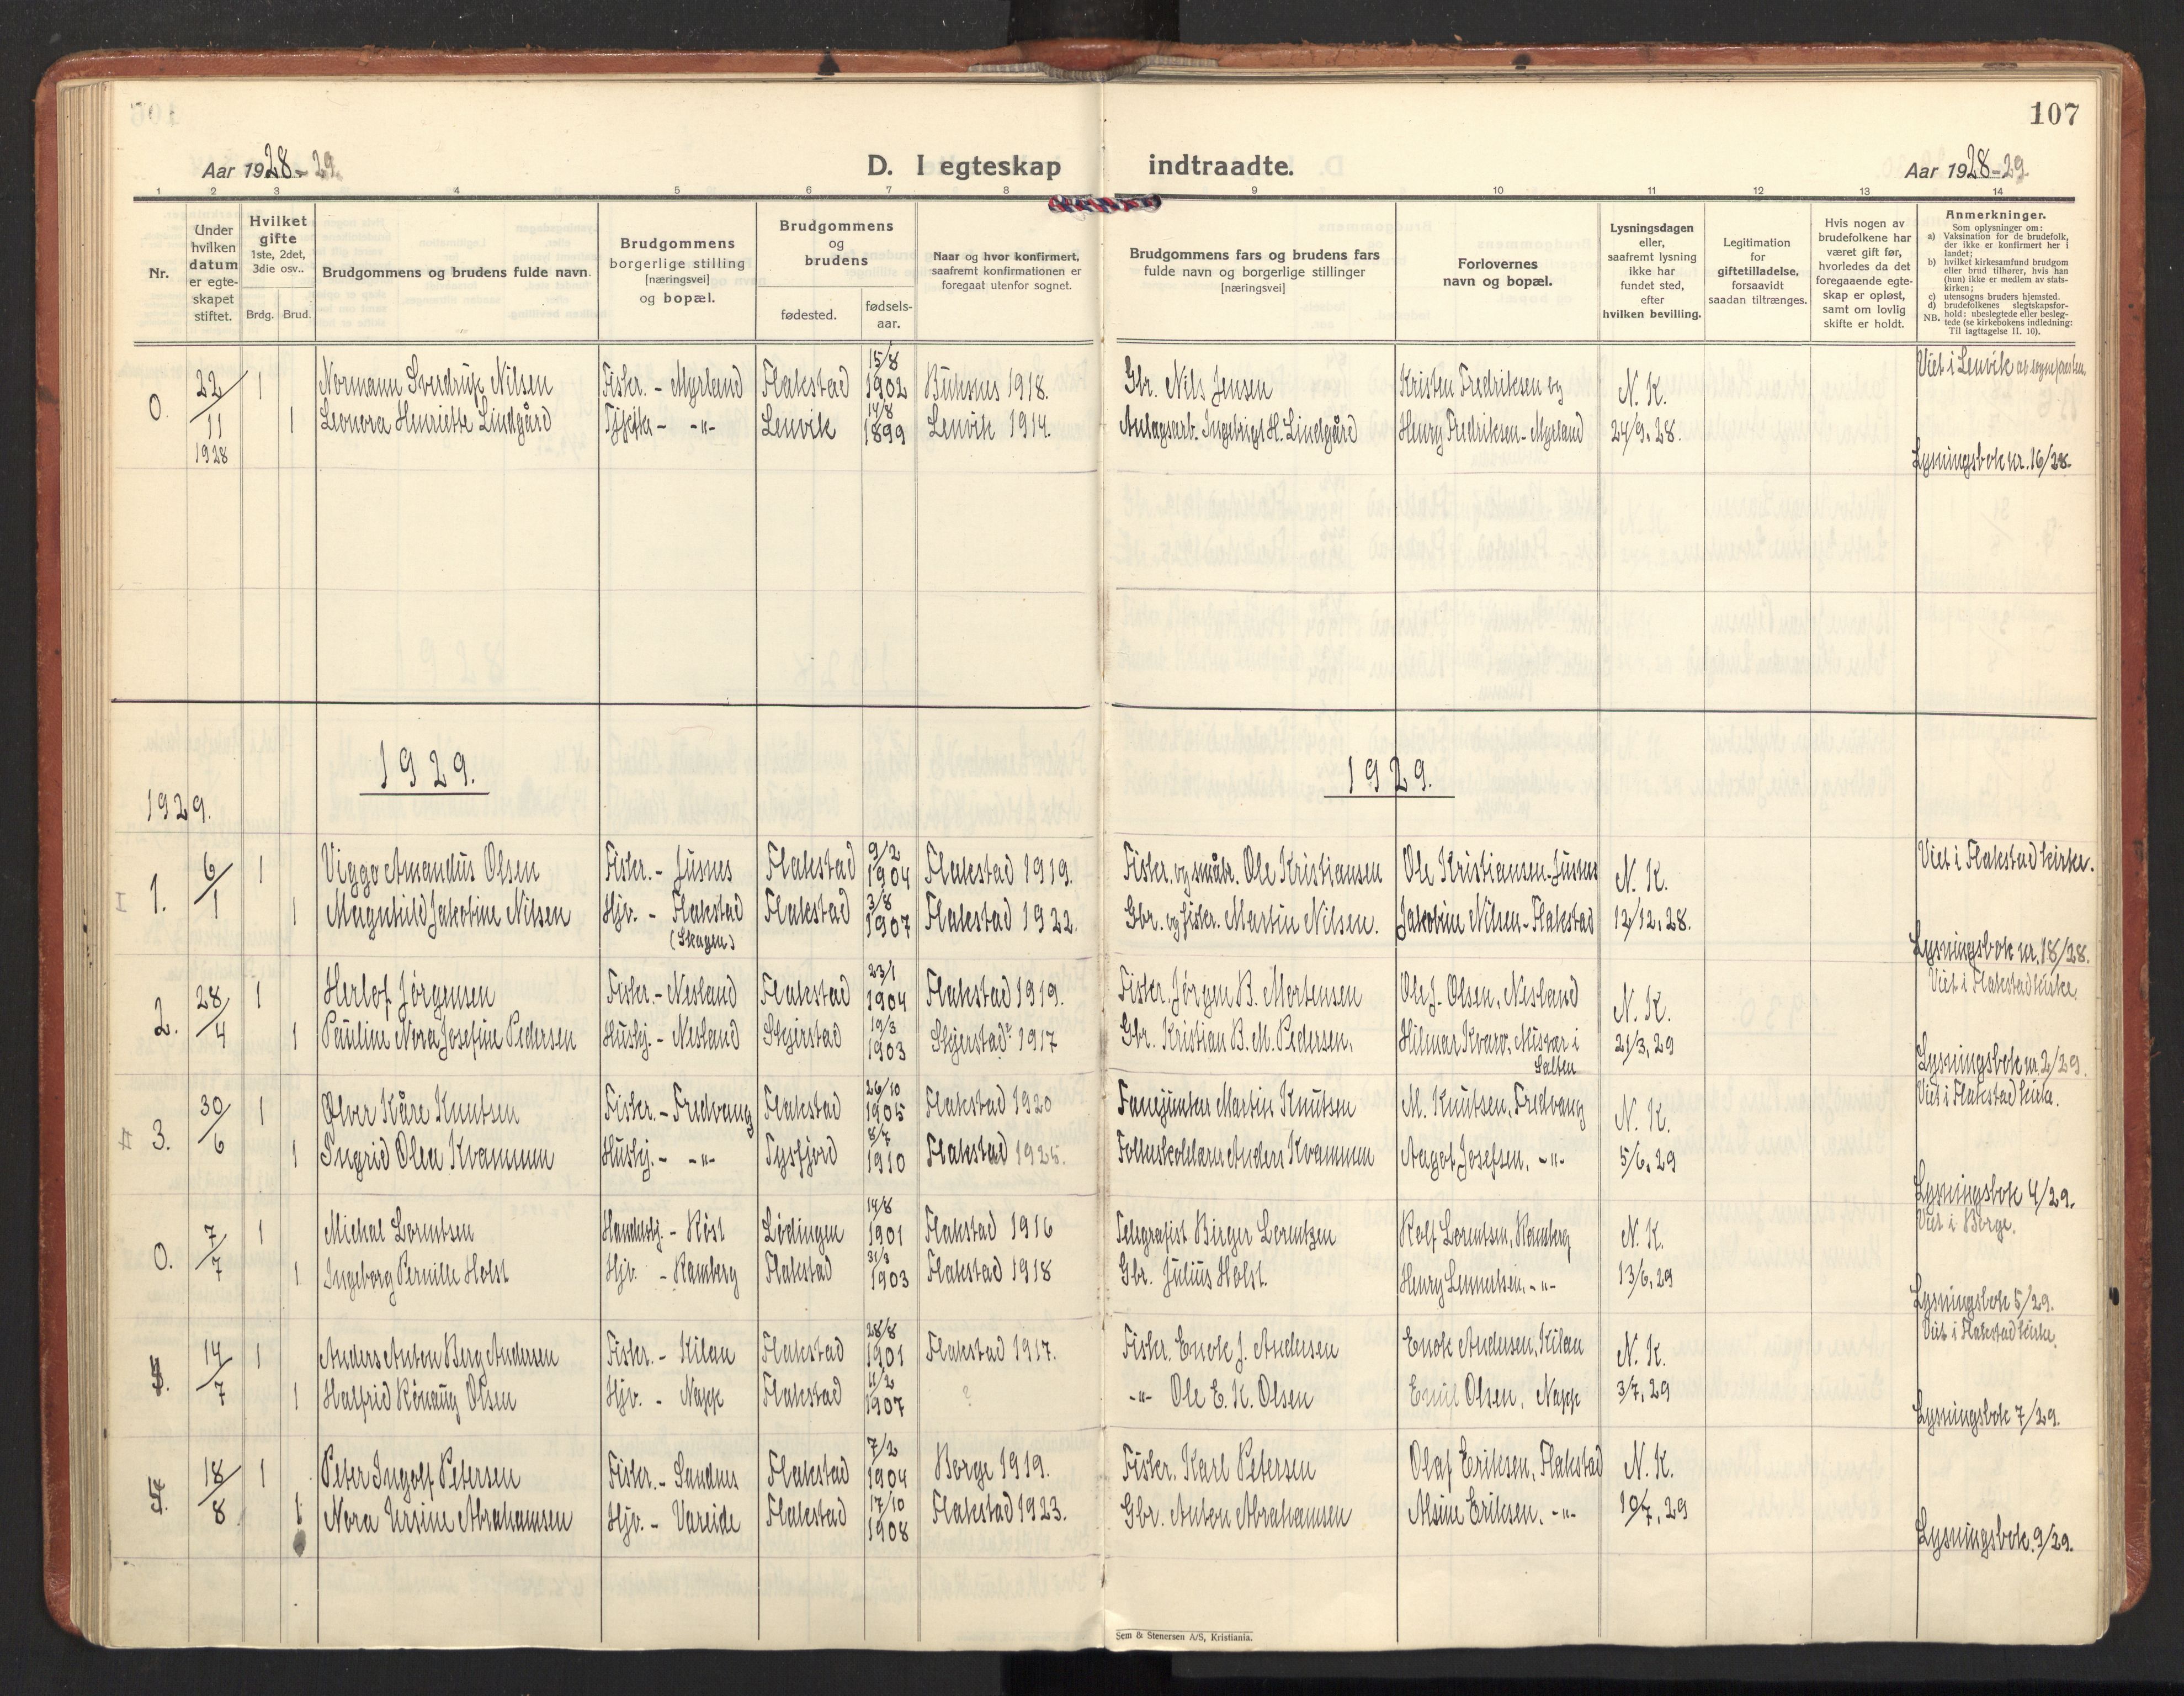 107
Aar 1928-29.
D. I egteskap indtraadte.
Aar 1928-29.
1 2 3 4 5 6 7 8 9 10 11 12 13 14
Nr.
Under hvilken datum er egte-skapet stiftet.
Hvilket gifte 1ste, 2det, 3die osv..
Brdg. Brud.
Brudgommens og brudens fulde navn.
Brudgommens borgerlige stilling [næringsvei] og bopæl.
Brudgommens og brudens
fødested.
fødsels-aar.
Naar og hvor konfirmert, saafremt konfirmationen er foregaat utenfor sognet.
Brudgommens fars og brudens fars fulde navn og borgerlige stillinger [næringsvei]
Forlovernes navn og bopæl.
Lysningsdagen eller, saafremt lysning ikke har fundet sted, efter hvilken bevilling.
Legitimation for giftetilladelse, forsaavidt saadan tiltrænges.
Hvis nogen av brudefolkene har været gift før, hvorledes da det foregaaende egte-skap er opløst, samt om lovlig skifte er holdt.
Anmerkninger.
Som oplysninger om:
a) Vaksination for de brudefolk, der ikke er konfirmert her i landet;
b) hvilket kirkesamfund brudgom eller brud tilhører, hvis han (hun) ikke er medlem av stats-kirken;
c) utensogns bruders hjemsted.
d) brudefolkenes slegtskapsfor-hold: ubeslegtede eller besleg-tede (se kirkebokens indledning: Til iagttagelse II. 10).
NB.
0. 22/11 1928 1 Normann Sverdrup Nilsen Fisker. - Myrland Flakstad 15/8 1902 Buksnes 1918. Gbr. Nils Jensen Kristen Fredriksen og N. K. Viet i Lenvik av sognepresten.
1 Leonora Henriette Lindgård - „ - Lenvik 14/8 1899 Lenvik 1914. Anlagsarb. Ingebrigt H. Lindgård Henry Fredriksen - Myrland 24/9, 28. Lysningsbok nr. 16/28.
1929. 1929.
1929.
1. 6/1 1 Viggo Amandus Olsen Fisker. - Jusnes Flakstad 9/2 1904 Flakstad 1919. Fisker. og småbr. Ole Kristiansen Ole Kristiansen - Jusnes N. K. Viet i Flakstad kirke.
I 1 Magnhild Jakobine Nilsen Hjv. - Flakstad (Skagen) Flakstad 3/8 1907 Flakstad 1922. Gbr. og fisker. Martin Nilsen. Jakobine Nilsen - Flakstad 12/12, 28. Lysningsbok nr. 18/28.
2. 28/4 1 Herlof Jørgensen Fisker. - Nesland Flakstad 23/1 1904 Flakstad 1919. Fisker. Jørgen B. Mortensen Ole J. Olsen, Nesland N. K. Viet i Flakstad kirke.
1 Pauline Nora Josefine Pedersen Hushj. - Nesland Skjerstad 19/3 1903 Skjerstad 1917 Gbr. Kristian B. M. Pedersen, Hilmar Kvarv, Misvær i Salten 21/3, 29 Lysningsbok nr. 2/29.
3. 30/6 1 Ølver Kåre Knutsen Fisker. - Fredvang Flakstad 26/10 1905 Flakstad 1920 Fanejunker Martin Knutsen M. Knutsen, Fredvang N. K. Viet i Flakstad kirke.
II 1 Ingrid Olea Kvammen Hushj. - - „ - Tysfjord 8/7 1910 Flakstad 1925. Folkeskolelærer Anders Kvammen Aagot Josefsen, - „ - 5/6, 29 Lysningsbok 4/29.
0. 7/7 1 Michal Lorentsen Handelsbj. - Røst Lødingen 14/8 1901 Flakstad 1916 Telegrafist Birger Lorentzen Rolf Lorentsen, Ramberg N. K. Viet i Borge.
1 Ingeborg Pernille Holst Hjv. - Ramberg Flakstad 31/3 1903 Flakstad 1918 Gbr. Julius Holst. Henry Lennertsen, - „ - 13/6, 29 Lysningsbok 5/29.
4. 14/7 1 Anders Anton Berg Andersen Fisker. - Kilan Flakstad 28/8 1901 Flakstad 1917. Fisker. Enok J. Andersen Enok Andersen, Kilan N. K. Viet i Flakstad kirke
1 Halfrid Rønaug Olsen Hjv. - Napp Flakstad 11/2 1907 ? - „ - Ole E. K. Olsen Emil Olsen, Napp 3/7, 29 Lysningsbok 7/29.
5. 18/8 1 Peter Ingolf Petersen Fisker. - Sandnes Flakstad 7/2 1904 Borge 1919. Fisker. Karl Petersen Olaf Eriksen, Flakstad N. K.
1 Nora Ursine Abrahamsen Hjv. - Vareide Flakstad 17/10 1908 Flakstad 1923. Gbr. Anton Abrahamsen Alsine Eriksen, - „ - 19/7, 29 Lysningsbok. 9/29.
Sem & Stenersen A/S, Kristiania.